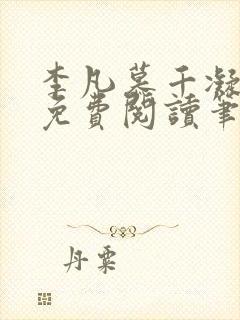 李凡慕千凝
免費閱讀筆
丹粟